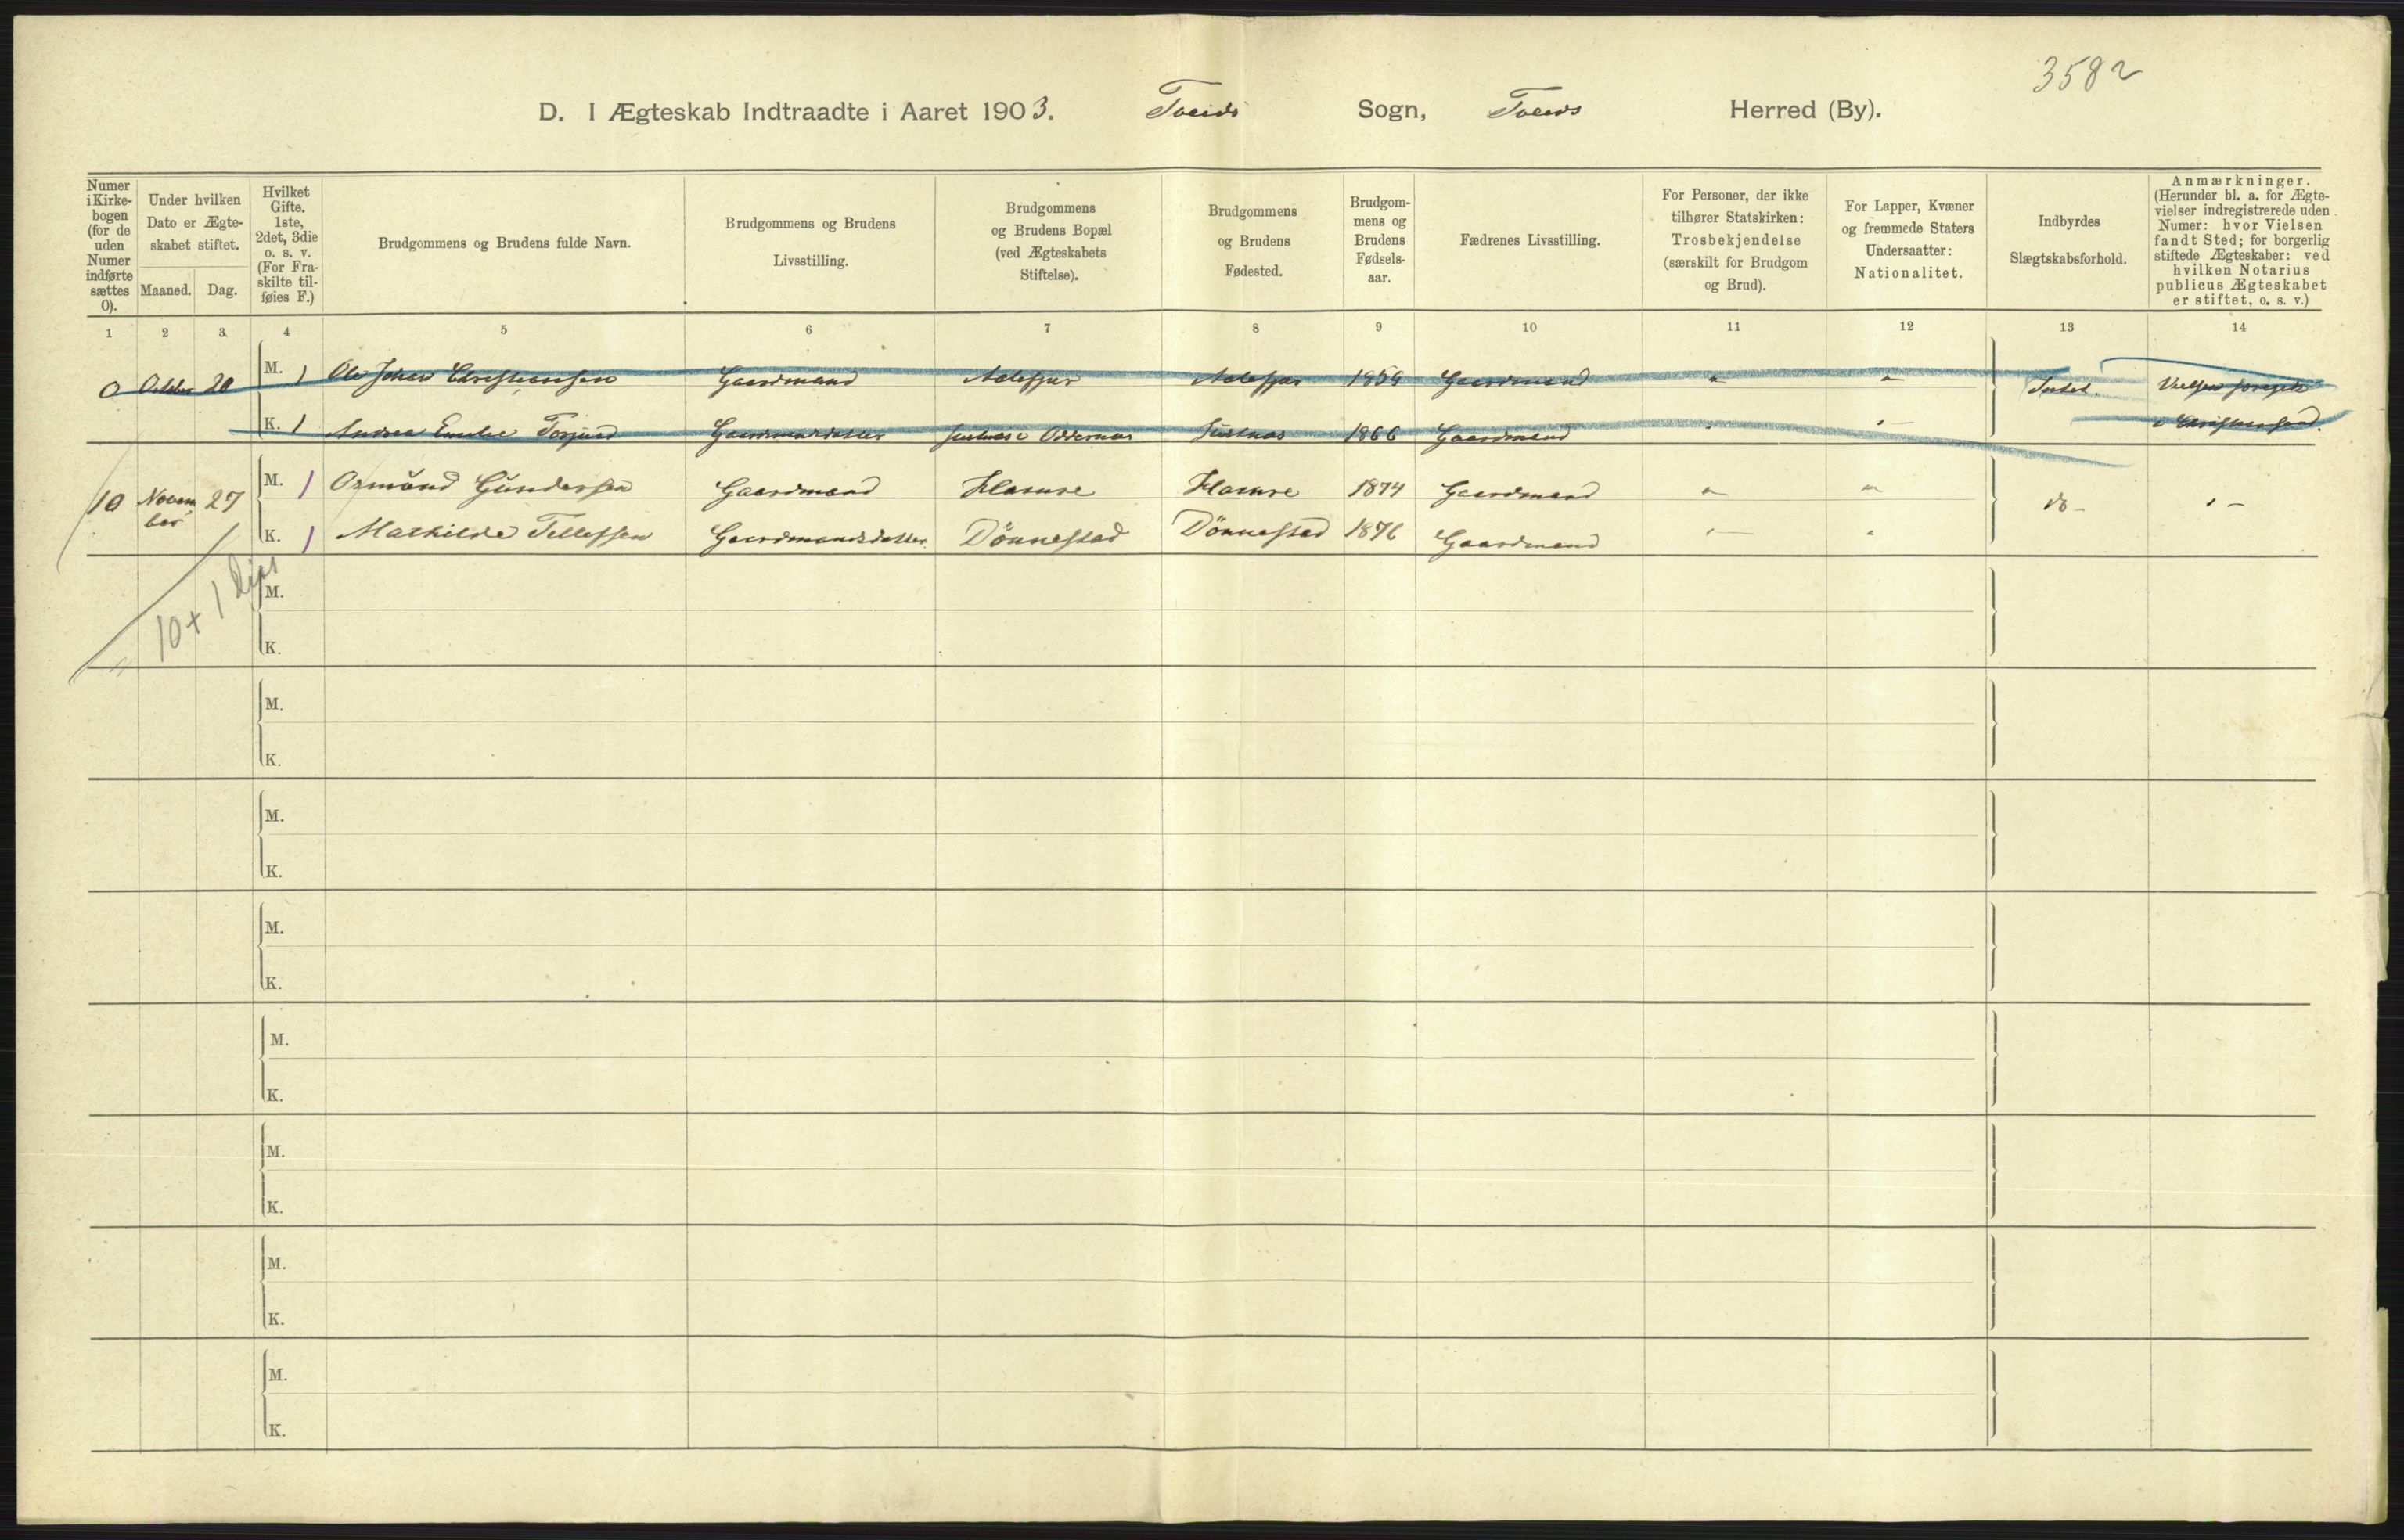 3582
D. I Ægteskab Indtraadte i Aaret 1903. Tveids Sogn, Tveids Herred (By).
Numer i Kirke-bogen (for de uden Numer indførte sættes 0).
Under hvilken Dato er Ægte-skabet stiftet.
Maaned. Dag.
Hvilket Gifte. 1ste, 2det, 3die o. s. v. (For Fra-skilte til-føies F.)
Brudgommens og Brudens fulde Navn.
Brudgommens og Brudens Livsstilling.
Brudgommens og Brudens Bopæl (ved Ægteskabets Stiftelse).
Brudgommens og Brudens Fødested.
Brudgom-mens og Brudens Fødsels-aar.
Fædrenes Livsstilling.
For Personer, der ikke tilhører Statskirken: Trosbekjendelse (særskilt for Brudgom og Brud).
For Lapper, Kvæner og fremmede Staters Undersaatter: Nationalitet.
Indbyrdes Slægtskabsforhold.
Anmærkninger. (Herunder bl. a. for Ægte-vielser indregistrerede uden Numer: hvor Vielsen fandt Sted; for borgerlig stiftede Ægteskaber: ved hvilken Notarius publicus Ægteskabet er stiftet, o. s. v.)
1 2 3. 4 5 6 7 8 9 10 11 12 13 14
0 Oktober 20 M. 1 Ole Johan Christiansen Gaardmand Aalefjær Aalefjær 1859 Gaardmand " " Intet. Vielsen foregik
K. 1 Andrea Emilie Gaardmandsdatter Justnes i Oddernes Justnes 1866 Gaardmand " " i Christianssand.
10 Novem 27 M. 1 Osmŭnd Gŭndersen Gaardmand Hamre Hamre 1874 Gaardmand " " do - " -
ber K. 1 Mathilde Tellefsen Gaardmandsdatter Dönnestad Dönnestad 1876 Gaardmand " "
10 + 1
M.
K.
M.
K.
M.
K.
M.
K.
M.
K.
M.
K.
M.
K.
M.
K.